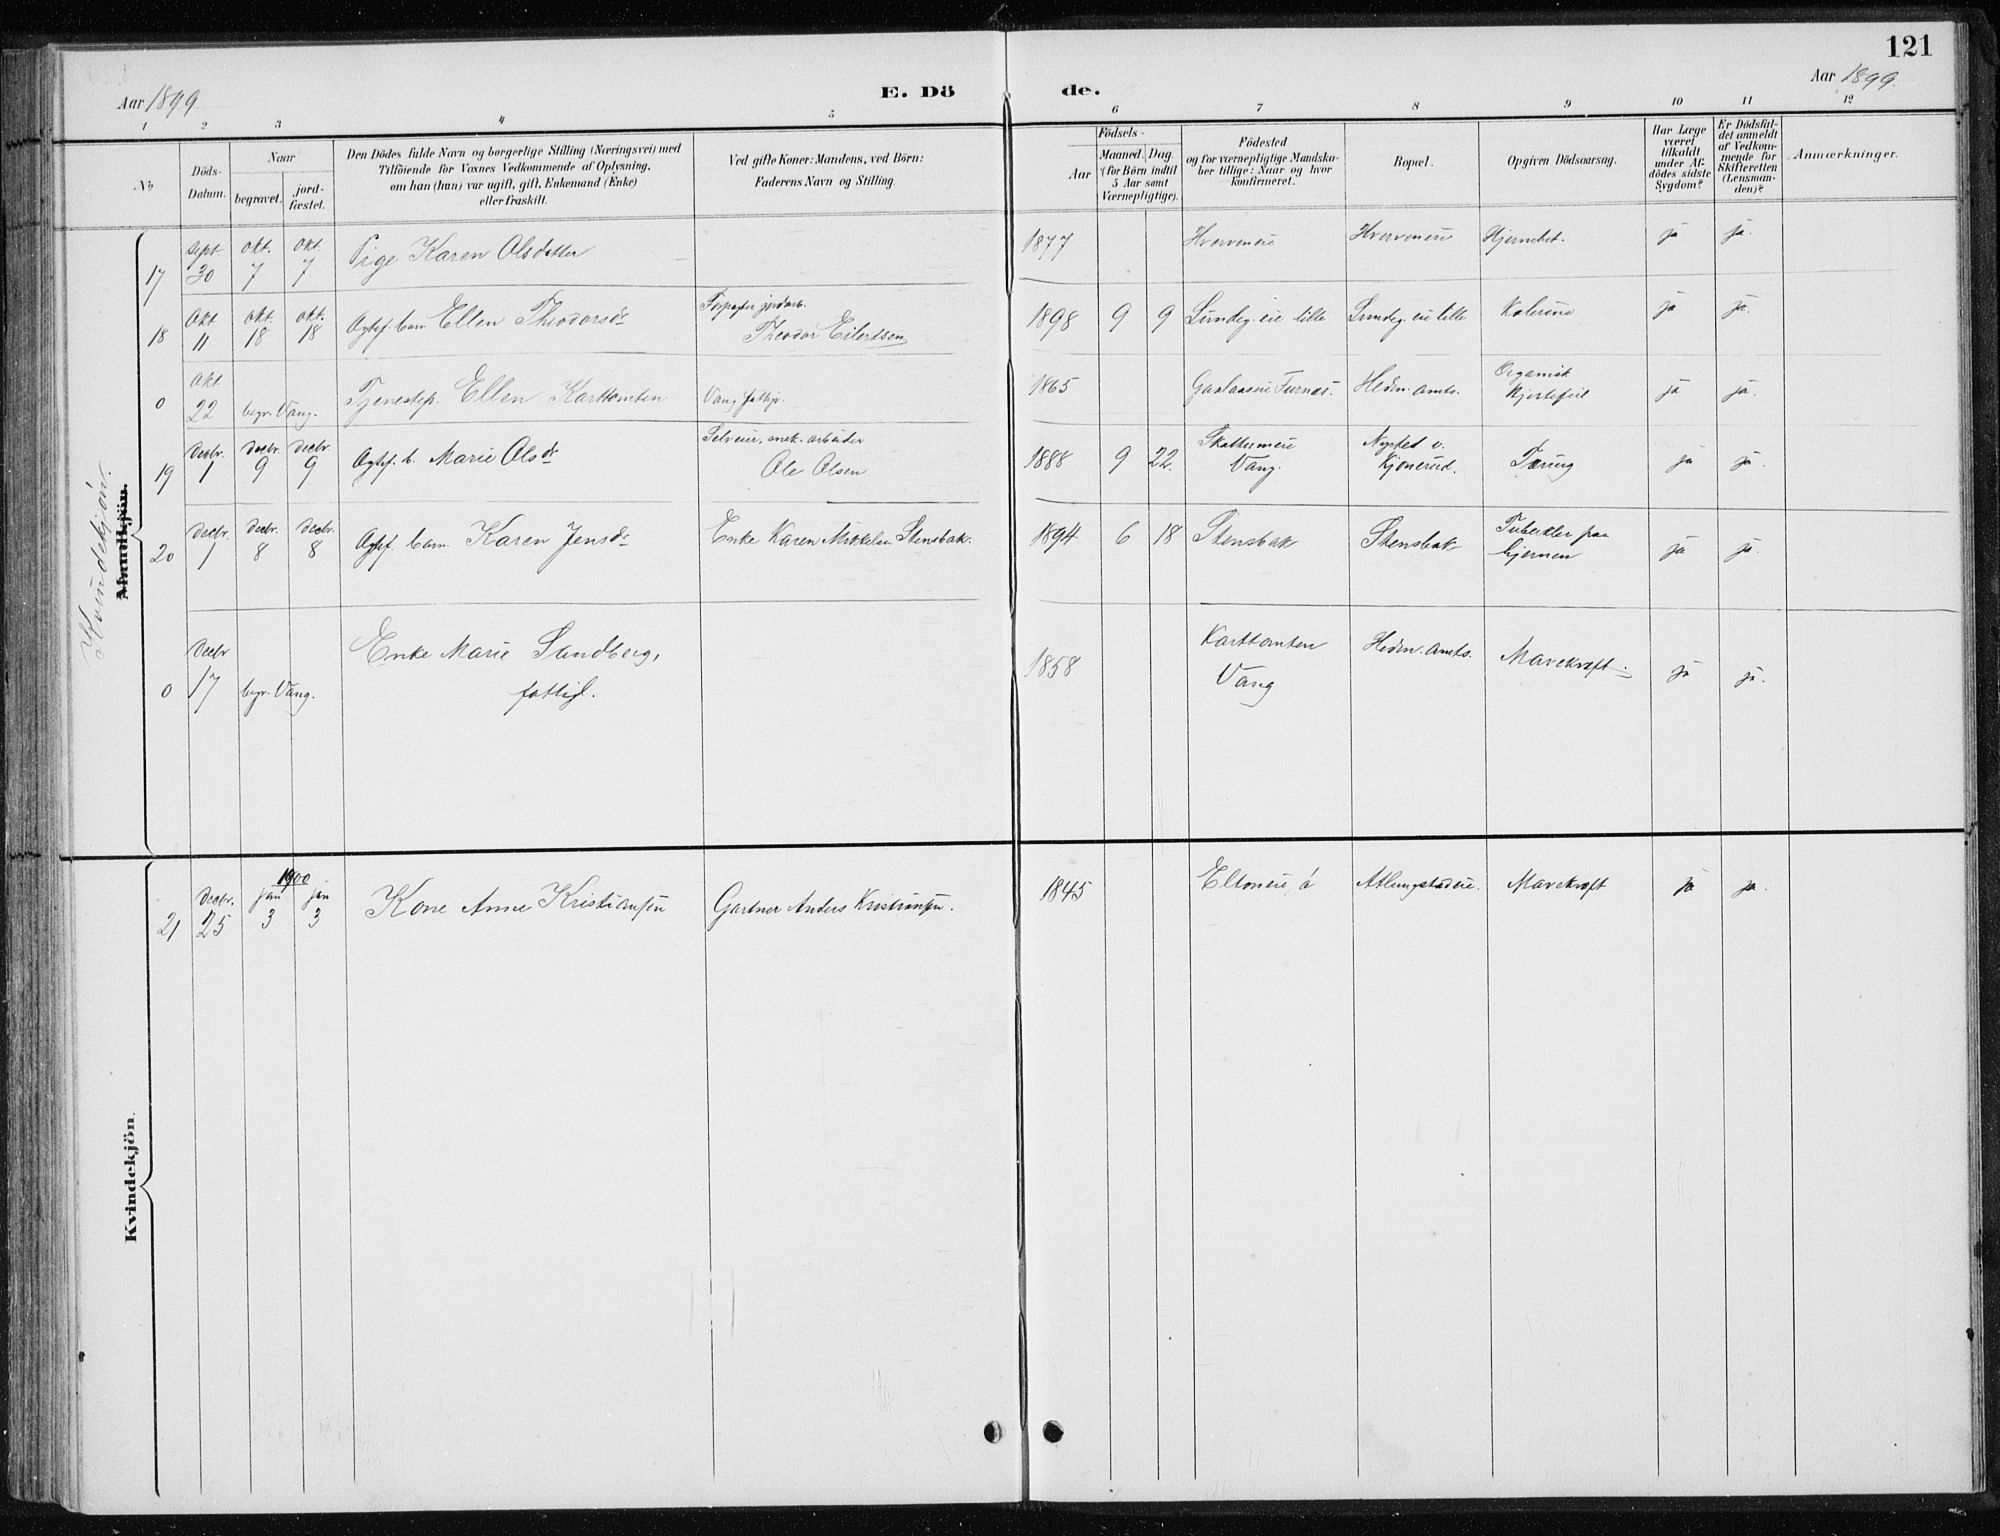 121
Aar 1899
E. Dö de.
Aar 1899.
1 2 3 4 5 6 7 8 9 10 11 12
No
Döds-Datum.
Naar
begravet.
jord-fæstet.
Den Dödes fulde Navn og borgerlige Stilling (Næringsvei) med
Tilföiende for Voxnes Vedkommende af Oplysning,
om han (hun) var ugift, gift, Enkemand (Enke)
eller fraskilt.
Ved gifte Koner: Mandens, ved Börn:
Faderens Navn og Stilling.
Födsels-
Aar
Maaned. Dag.
(for Börn indtil
5 Aar samt
Værnepligtige).
Födested
og for værnepligtige Mandska-
ber tillige: Naar og hvor
konfirmeret.
Bopæl.
Opgiven Dödsaarsag.
Har Læge
været
tilkaldt
under Af-
dödes sidste
Sygdom?
Er Dödsfal-
det anmeldt
af Vedkom-
mende for
Skifteretten
(Lensman-
den)?
Anmærkninger.
Kvindekjön.
Mandkjön.
17 Sept. 30 Okt. 7 Okt. 7 Pige Karen Olsdatter 1877 ja ja.
18 Okt 11 Okt. 18 Okt. 18 Ægtef. barn Ellen Theodorsdr
Theodor Eilertsen 1898 9 9 Lundeg. eie lille Lundeg. eie lille Kolerine ja ja.
0 Okt 22 begr. Vang. Tjenestep. Ellen Karttomten Vang 1865 Furnæs. Hedm. amts. Organisk
Hjertefeil ja ja.
19 Decbr. 1 Decbr. 9 Decbr. 9 Ægtef. b. Marie Olsdr Selveier, snek. arbeider
Ole Olsen 1888 9 22. Vang. Nysted v.
Kjonerud. Tæring ja ja.
20 Decbr. 1 Decbr. 8 Decbr. 8 Ægtef. barn Karen Jensdr Enke Karen Mikkelsn Stensbak. 1894 6 18 Stensbak Stensbak Tuberkler paa
hjernen ja ja.
0 Decbr 17 begr. Vang. Enke Marie Sandberg,
fattigl. 1858 Karttomten
Vang Hedm. amts. Mavekræft. ja ja.
Kvindekjön.
21 Decbr. 25 1900 Jan 3 Jan 3 Kone Anne Kristiansen Gartner Anders Kristiansen. 1845 Mavekræft ja ja.